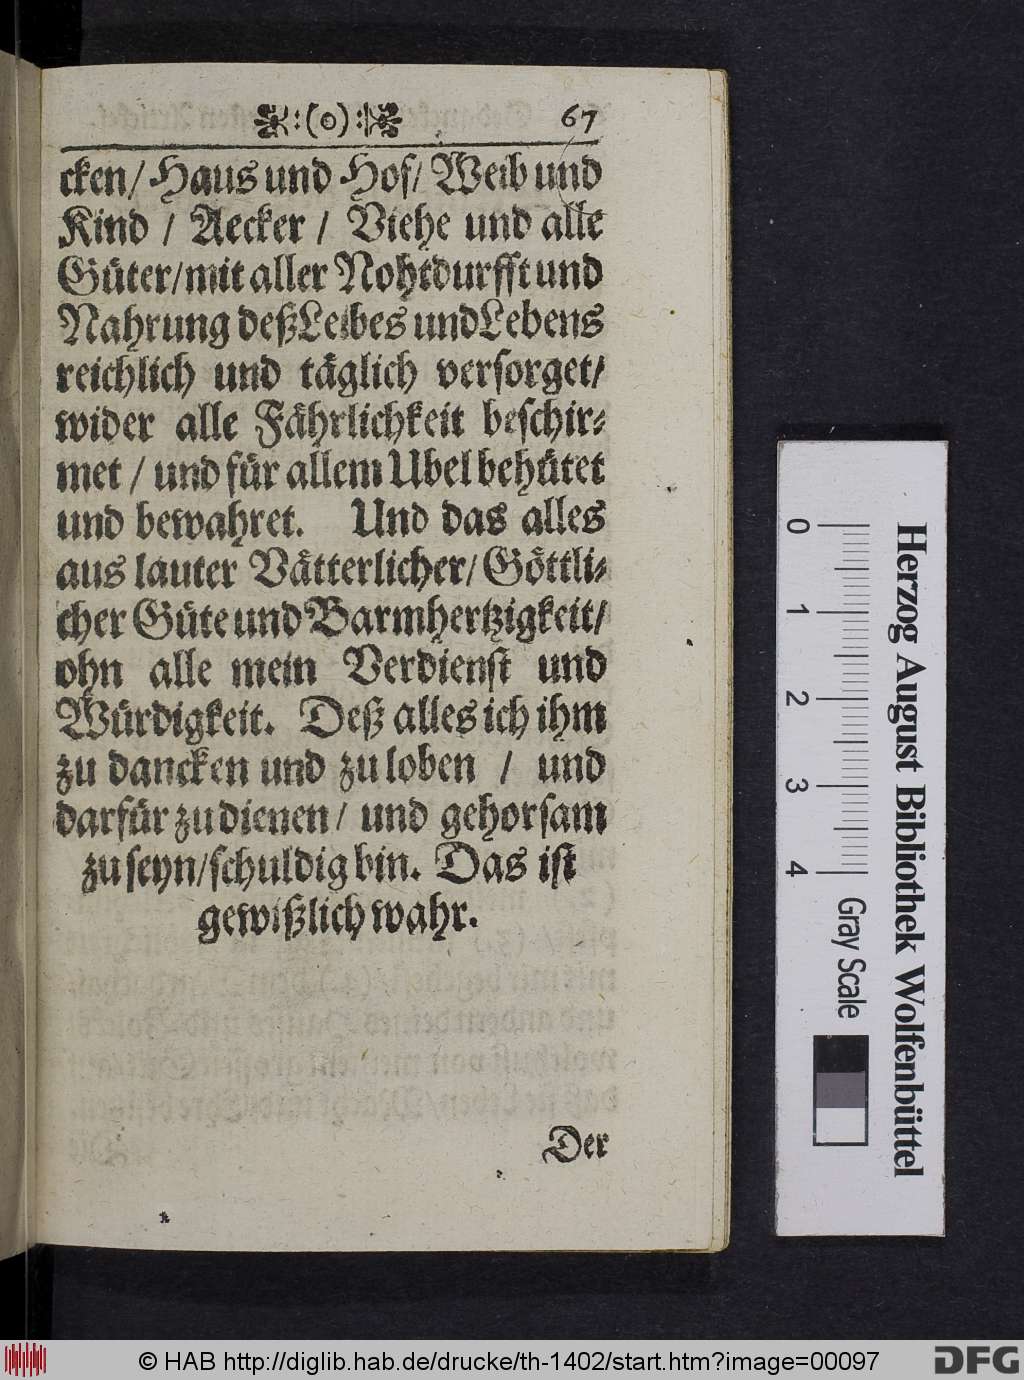 :(o): 67
cken/ Haus und Hof/ Weib und
Kind / Aecker / Viehe und alle
Güter/mit aller Nohtdurfft und
Nahrung deß Leibes und Lebens
reichlich und täglich versorget/
wider alle Fährlichkeit beschir⸗
met / und für allem Ubel behütet
und bewahret. Und das alles
aus lauter Vätterlicher/ Göttli⸗
cher Güte und Barmhertzigkeit/
ohn alle mein Verdienst und
Würdigkeit. Deß alles ich ihm
zu dancken und zu loben / und
darfür zu dienen/ und gehorsam
zu seyn/schuldig bin. Das ist
gewißlich wahr.
Der
Herzog August Bibliothek Wolfenbüttel
0 1 2 3 4 Gray Scale
© HAB http://diglib.hab.de/drucke/th-1402/start.htm?image=00097
DFG